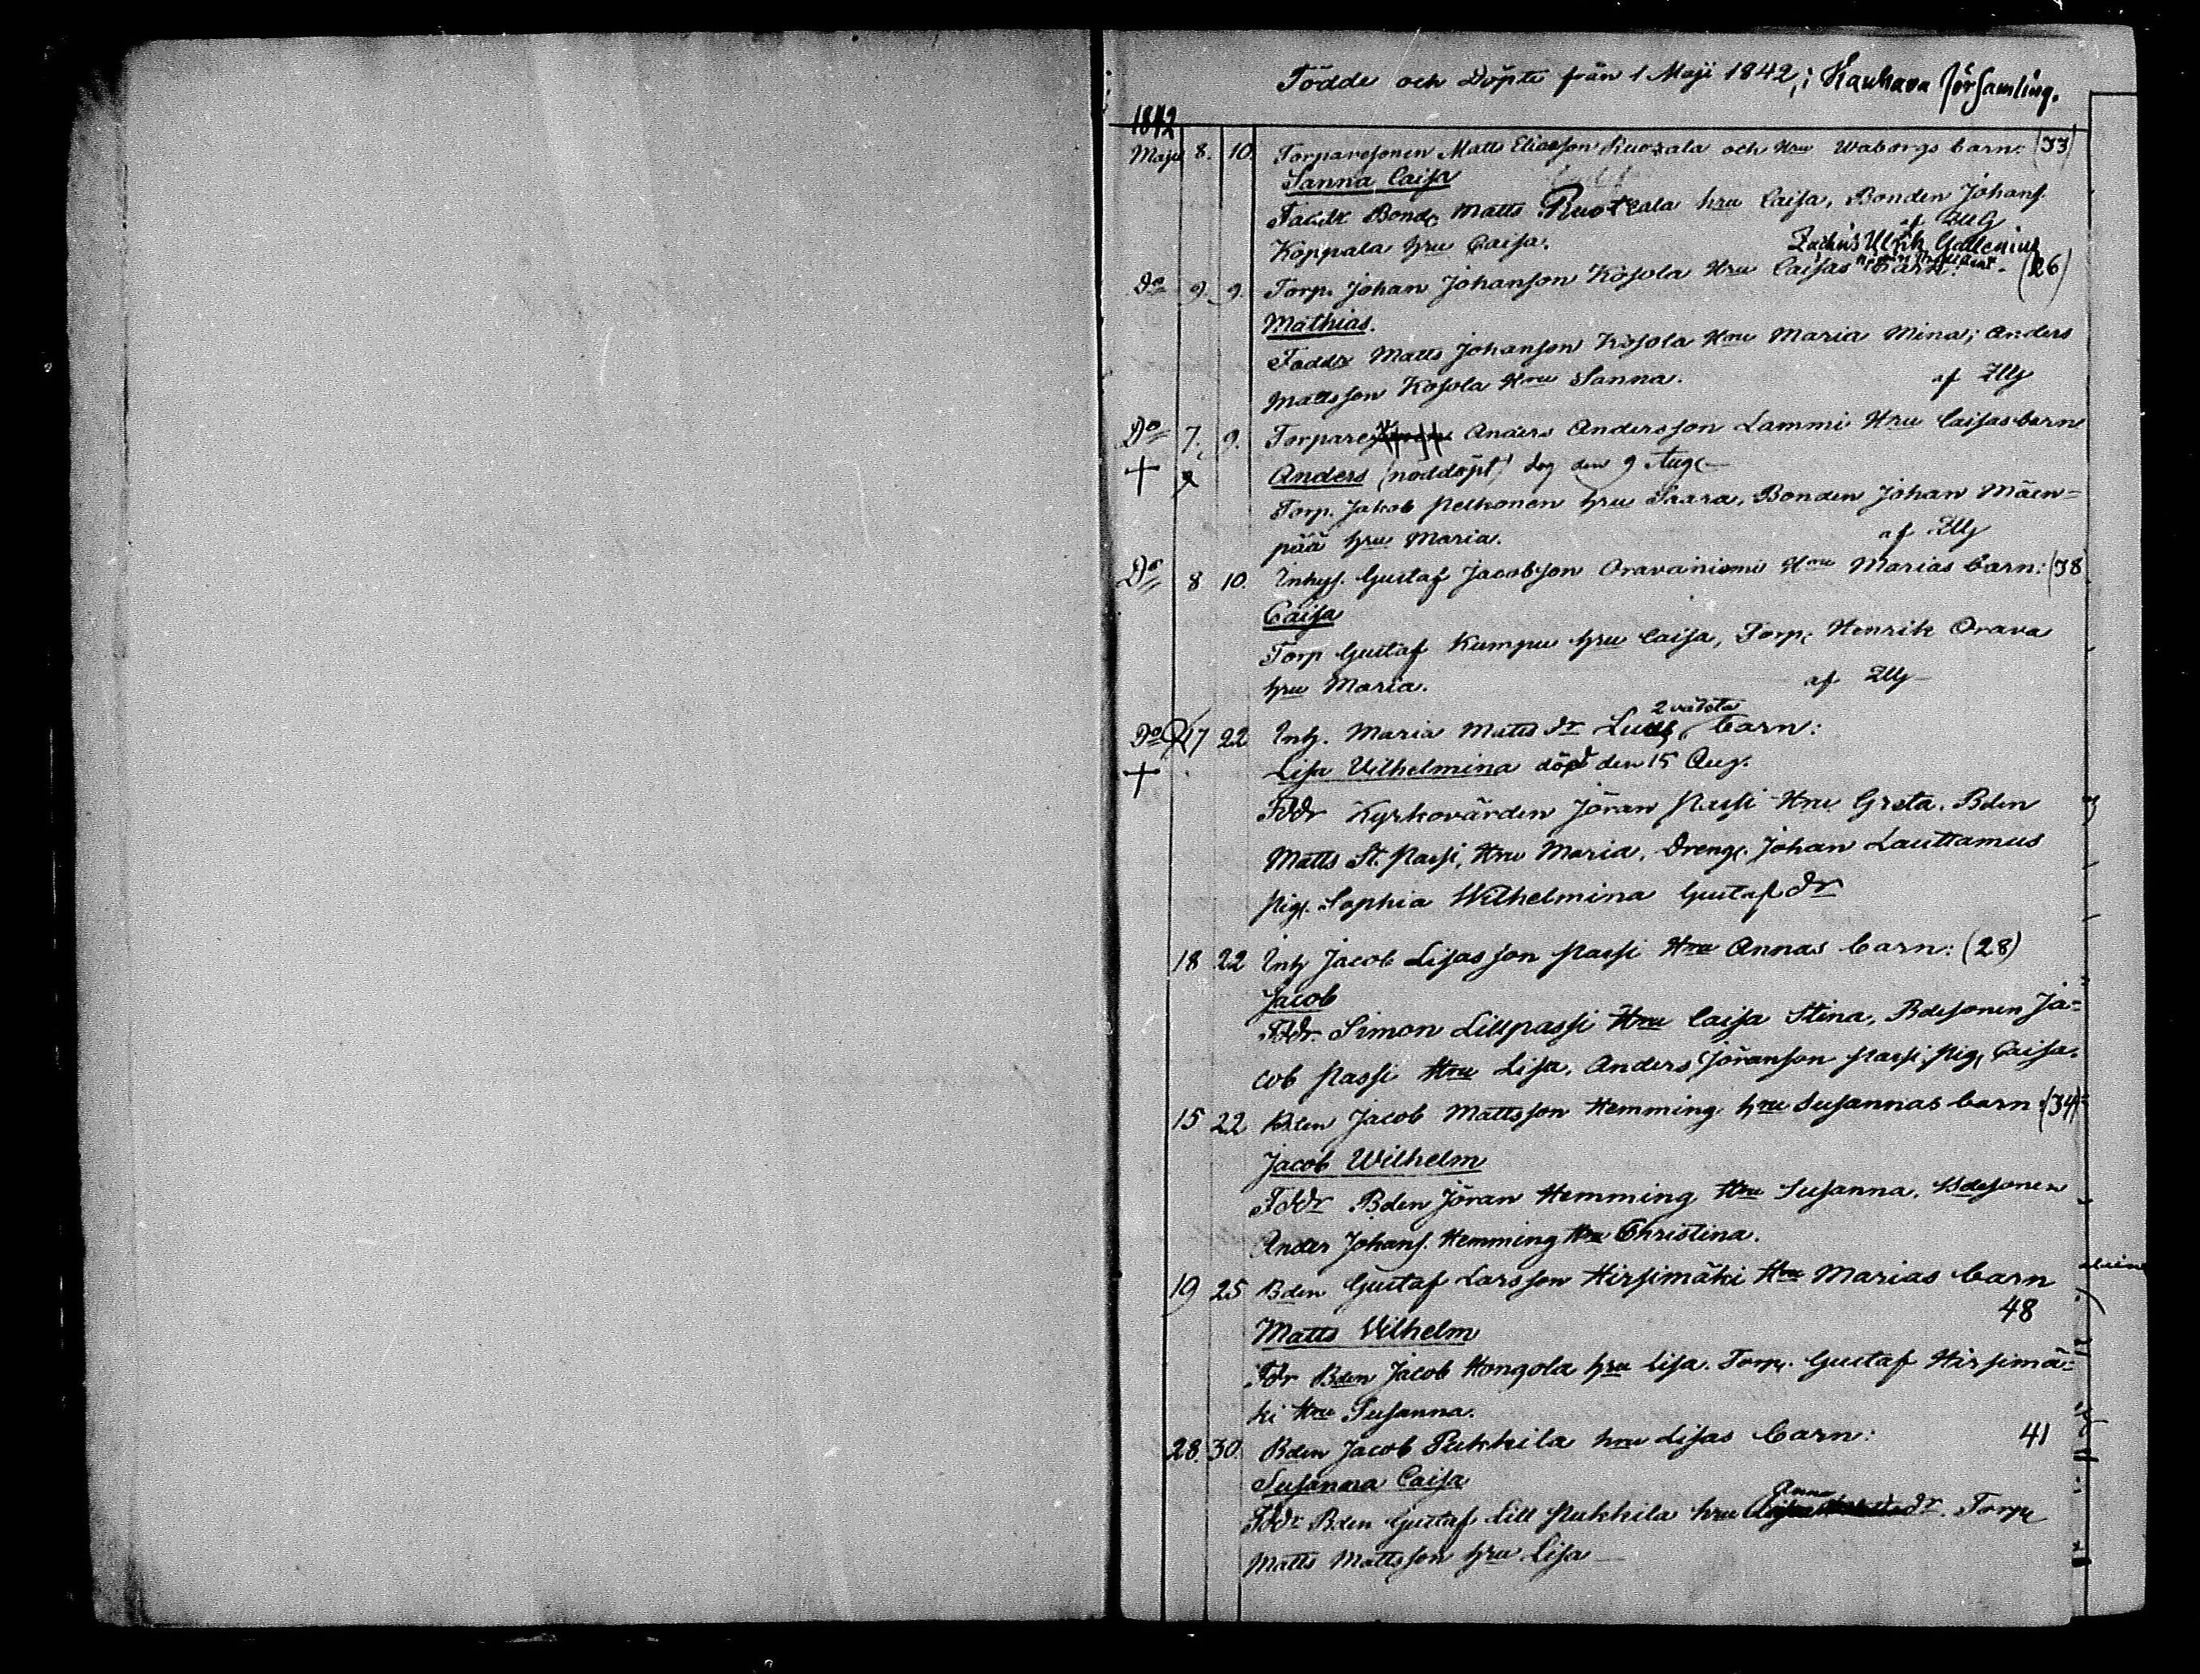 Födde och Döpte från 1 Maji 1842, i Kauhava församling.
1842
Maji 8. 10. Torparesonen Matts Eliasson Ruotzala och Hru Waborgs barn: (33)
Sanna Caisa
Faddr Bonde Matts Ruotzala hru Caisa, Bonden Johans.
Koppala hru Caisa. af ZUG
Zachris Ulrik Gallenius
Do 9. 9. Torp. Johan Johanson Kosola Hru Caisas barn. (26)
Mathias.
Faddr Matts Johanson Kosola Hru Maria Mina; Anders
Mattsson Kosola Hru Sanna. af ZUG
Do 7. 9. Torpare Anders Andersson Lammi Hru Caisas barn
+ Anders (nöddöpt) dog den 9 Aug.
Torp. Jakob Pelkonen hru Saara, Bonden Johan Mäen=
pää hru Maria. af ZUG
Do 8 10. Inhys. Gustaf Jacobson Oravaniemi Hru Marias barn: (38
Caisa
Torp Gustaf Kumpu hru Caisa, Torp. Henrik Orava
hru Maria. af ZUG
Do 17 22 Inh. Maria Matts dr 2 oäkta barn:
+ Lisa Vilhelmina död den 15 Aug.
Fddr Kyrkovärden Jöran Passi Hru Greta. Bden
Matts St. Passi, Hru Maria, Dreng. Johan Lauttamus
Pig. Sophia Wilhelmina Gustafdr
18 22 Inh Jacob Lisasson Passi Hru Annas barn: (28)
Jacob
Fddr. Simon Lillpassi Hru Caisa Stina, Bdesonen Ja=
cob Passi Hru Lisa, Anders Jöranson Passi, Pig. Caisa.
15 22 Bden Jacob Mattsson Hemming hru Susannas barn: (34)
Jacob Wilhelm
Fddr Bden Jöran Hemming Hru Susanna, Bdesonen
Ander Johans. Hemming Hru Christina.
19 25 Bden Gustaf Larsson Hirsimäki Hru Marias barn
48
Matts Vilhelm
Fdr Bden Jacob Hongola hru Lisa. Torp. Gustaf Hirsimä=
ki Hru Susanna.
28. 30. Bden Jacob Pukkila hru Lisas barn: 41
Susanna Caisa
Fddr Bden Gustaf Lill Pukkila hru Anna dr. Torp
Matts Mattsson hru Lisa